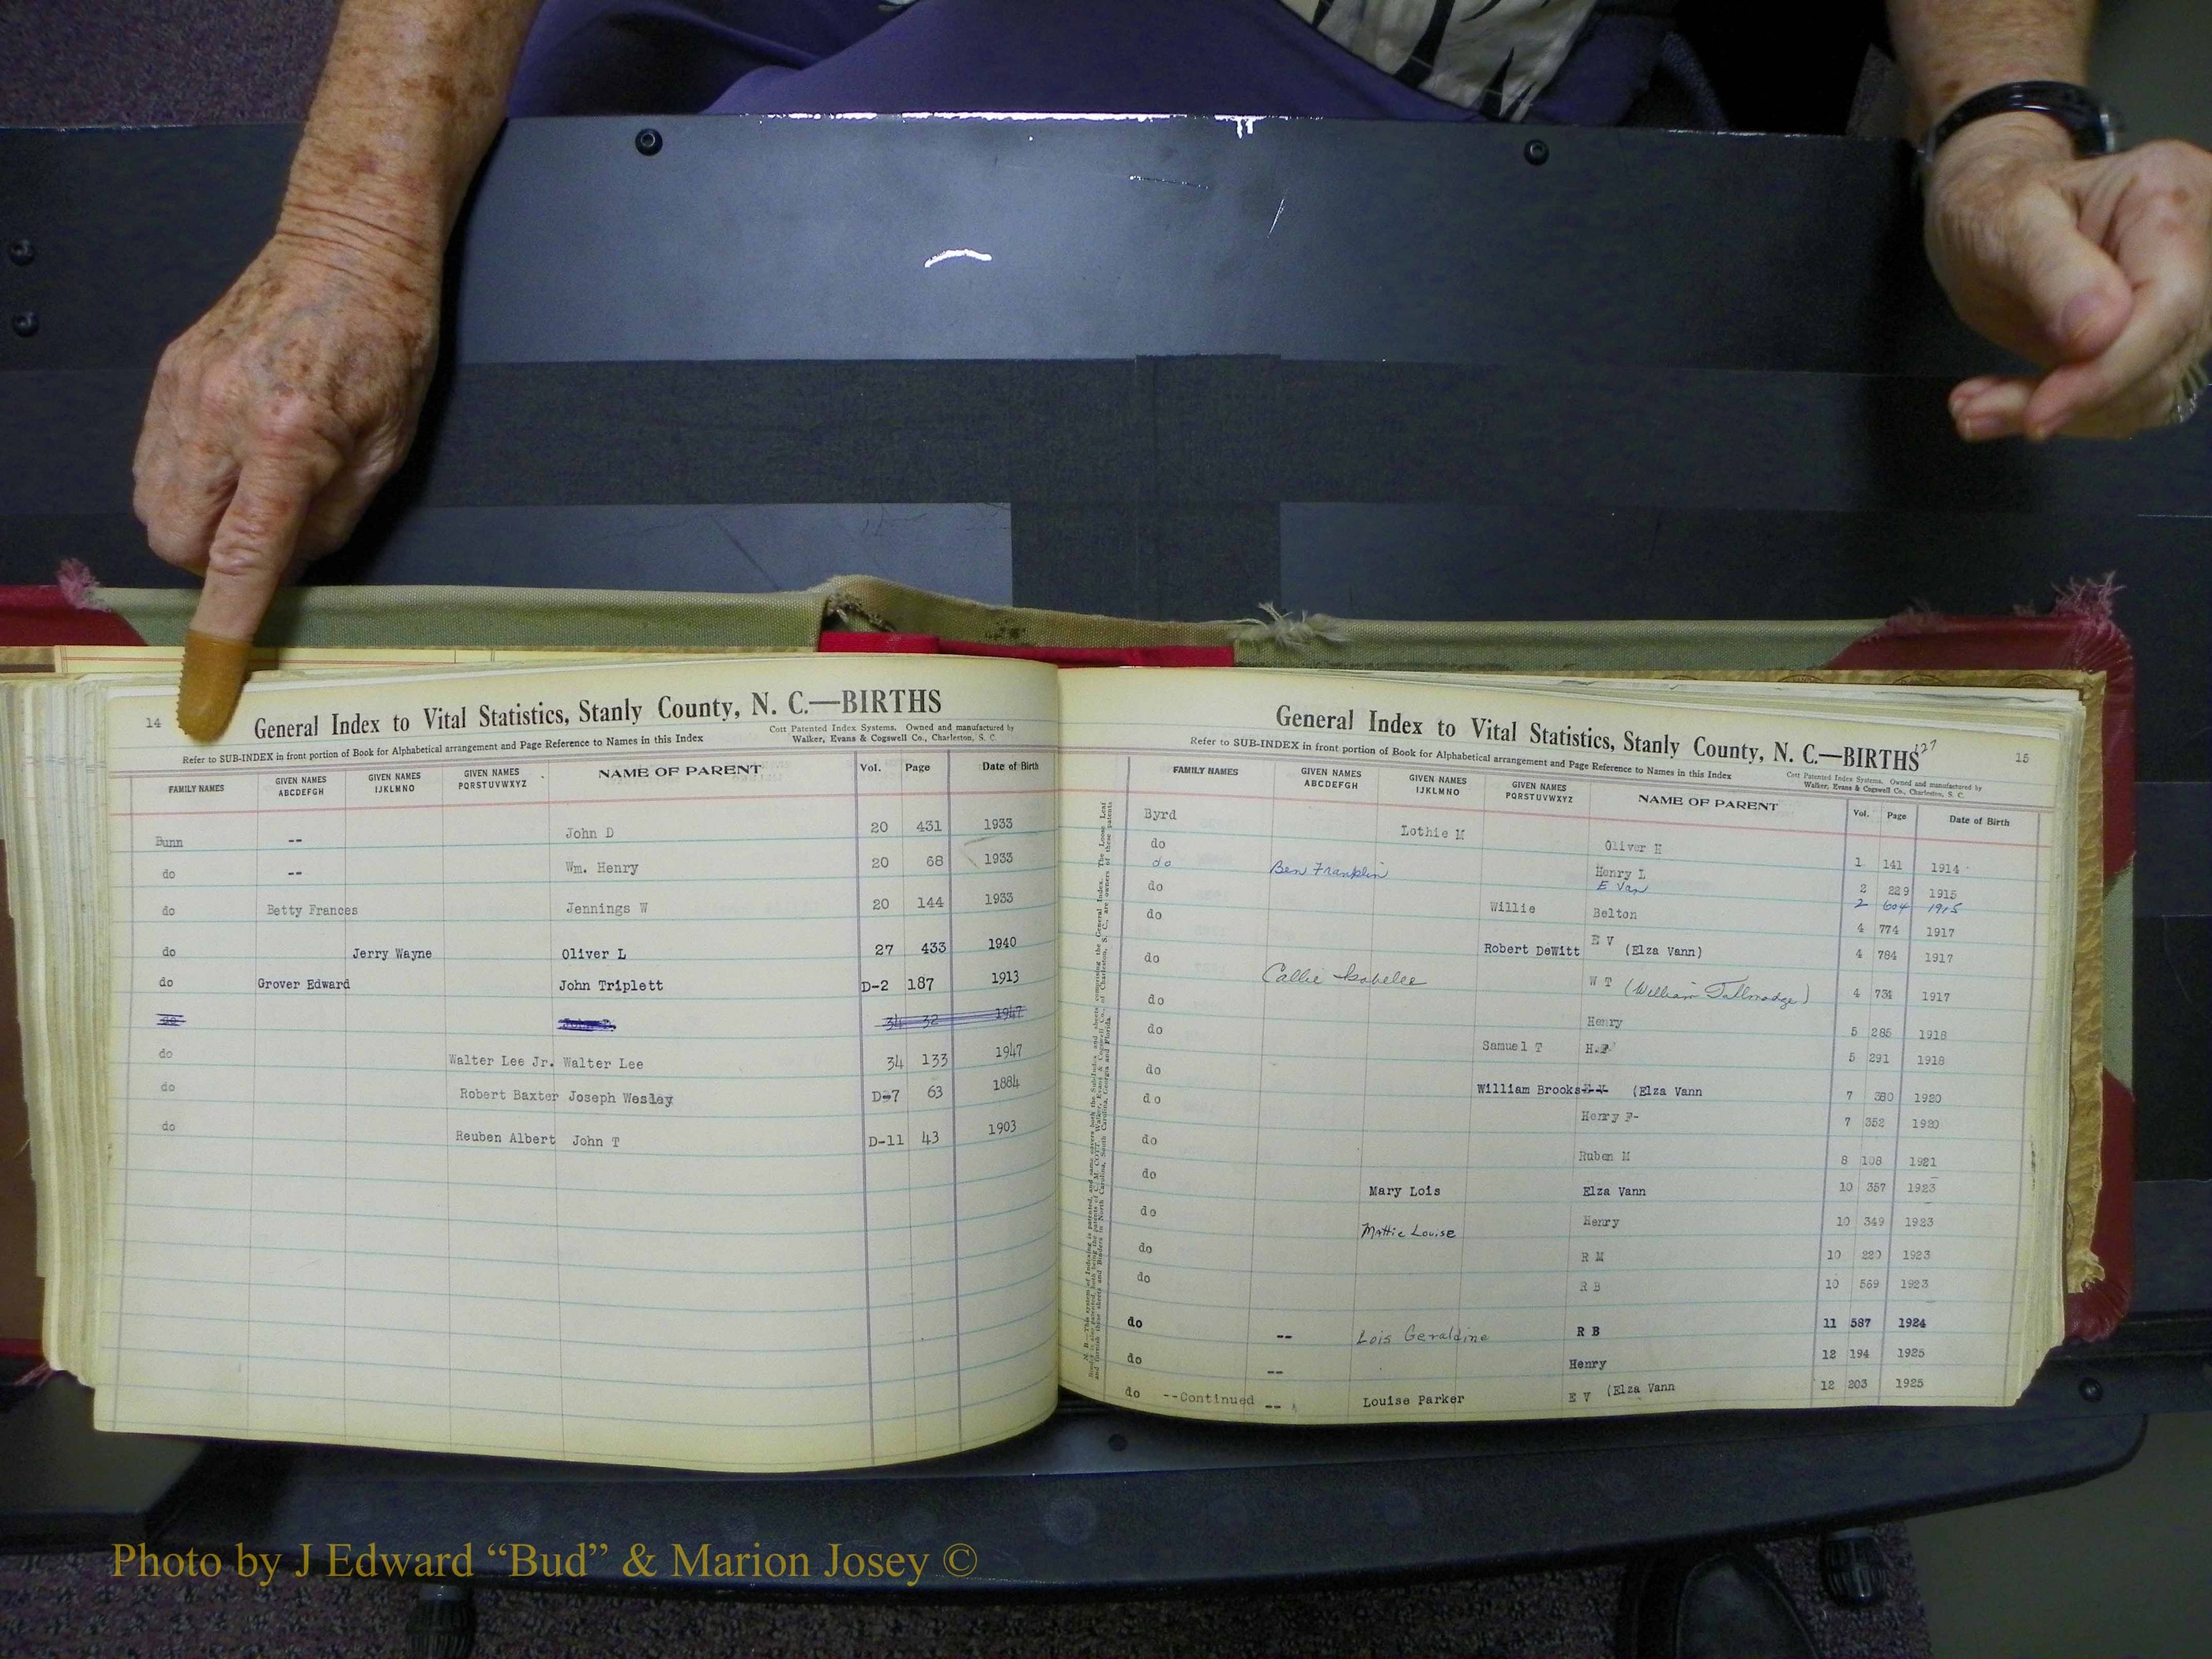 14
General Index to Vital Statistics, Stanly County, N. C.—BIRTHS
Refer to SUB-INDEX in front portion of Book for Alphabetical arrangement and Page Reference to Names in this Index
Cott Patented Index Systems. Owned and manufactured by
Walker, Evans & Cogswell Co., Charleston, S. C.
FAMILY NAMES GIVEN NAMES ABCDEFGH GIVEN NAMES IJKLMNO GIVEN NAMES PQRSTUVWXYZ NAME OF PARENT Vol. Page Date of Birth
Bunn -- John D 20 431 1933
do -- Wm. Henry 20 68 1933
do Betty Frances Jennings W 20 144 1933
do Jerry Wayne Oliver L 27 433 1940
do Grover Edward John Triplett D-2 187 1913
do 34 32 1947
do Walter Lee Jr. Walter Lee 34 133 1947
do Robert Baxter Joseph Wesley D-7 63 1884
do Reuben Albert John T D-11 43 1903
General Index to Vital Statistics, Stanly County, N. C.—BIRTHS
127
15
Refer to SUB-INDEX in front portion of Book for Alphabetical arrangement and Page Reference to Names in this Index
Cott Patented Index Systems. Owned and manufactured by
Walker, Evans & Cogswell Co., Charleston, S. C.
FAMILY NAMES GIVEN NAMES ABCDEFGH GIVEN NAMES IJKLMNO GIVEN NAMES PQRSTUVWXYZ NAME OF PARENT Vol. Page Date of Birth
Byrd Lothie M Oliver H 1 141 1914
do Henry L 2 229 1915
do Ben Franklin E Van 2 604 1915
do Willie Belton 4 774 1917
do Robert DeWitt E V (Elza Vann) 4 784 1917
do Callie Isabelee W T (William Tallmadge) 4 734 1917
do Henry 5 285 1918
do Samuel T H. 5 291 1918
do William Brooks (Elza Vann 7 380 1920
do Henry F- 7 352 1920
do Ruben M 8 108 1921
do Mary Lois Elza Vann 10 357 1923
do Mattie Louise Henry 10 349 1923
do R M 10 220 1923
do R B 10 569 1923
do -- Lois Geraldine R B 11 587 1924
do -- Henry 12 194 1925
do --Continued -- Louise Parker E V (Elza Vann 12 203 1925
Photo by J Edward “Bud” & Marion Josey ©